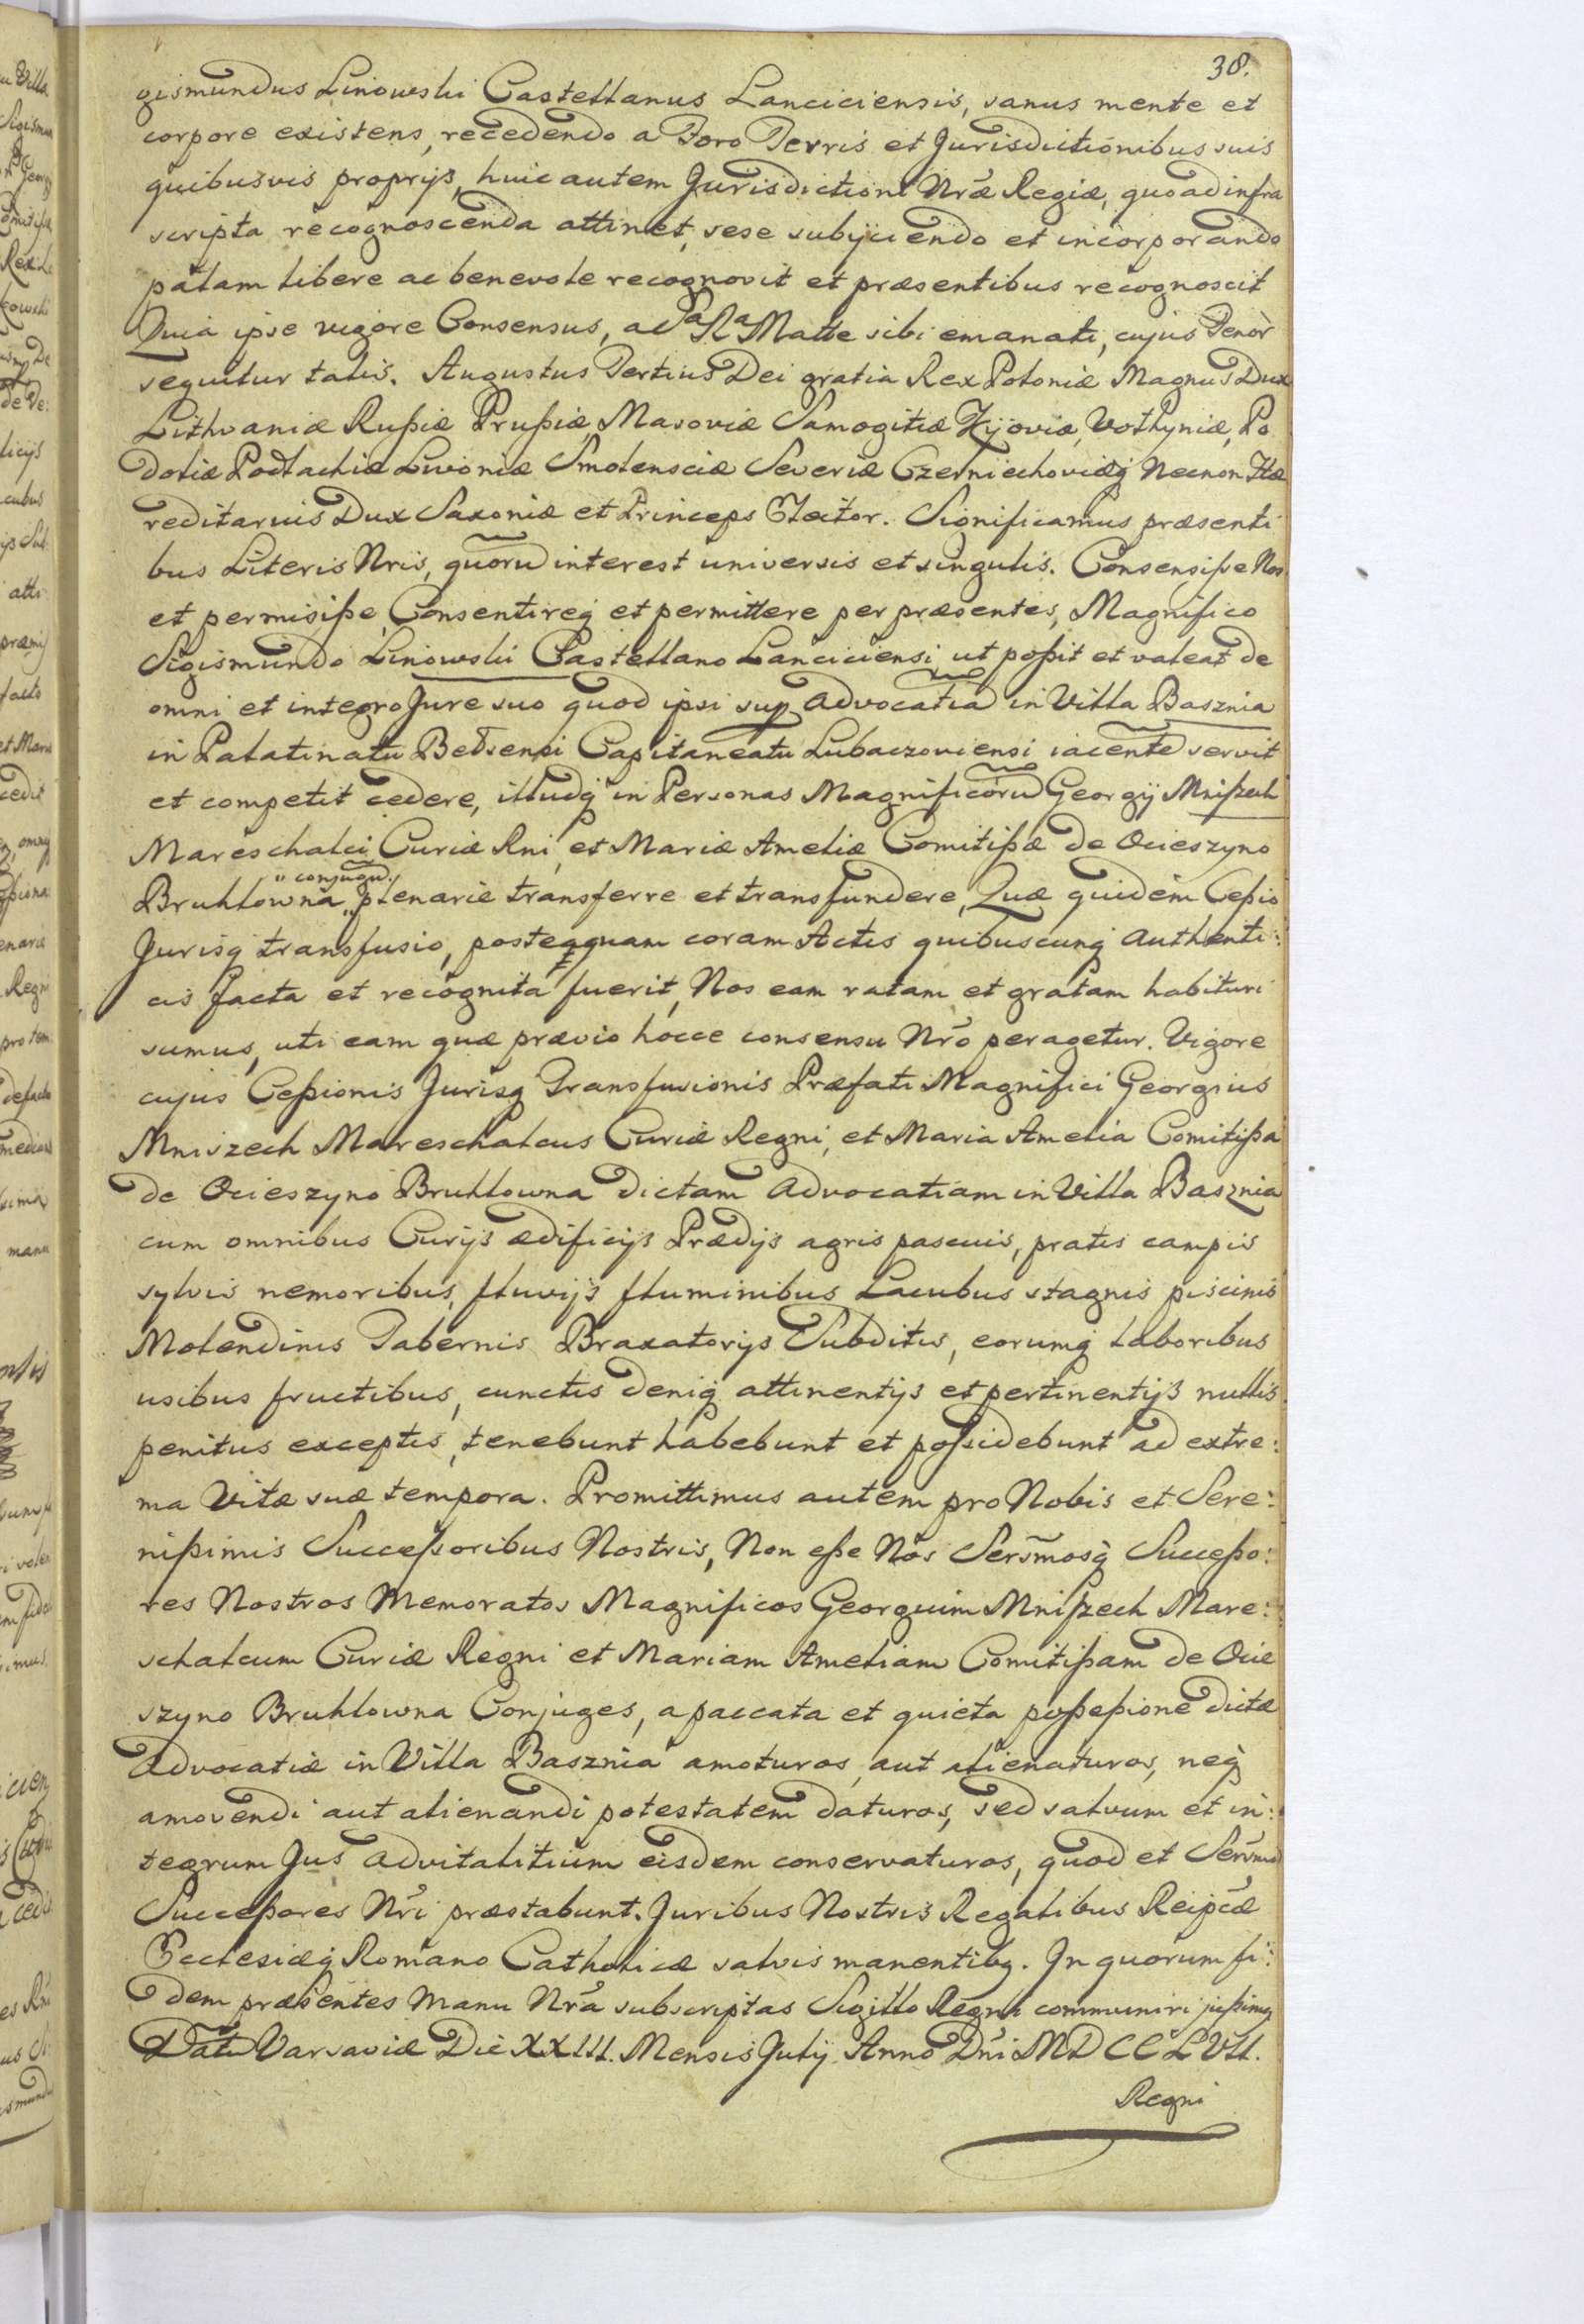 38.
gismundus Linowski Castellanus Lanciciensis, sanus mente et
corpore existens, recedendo a Foro Terris et Jurisdictionibus suis
quibusvis proprijs, huic autem Jurisdictioni Nræ Regiæ, quoad infra
scripta recognoscenda attinet, sese subijciendo et incorporando
palam libere ac benevole recognovit et præsentibus recognoscit
Quia ipse vigore Consensus, a Sa Ra Matte sibi emanati, cujus Tenor
sequitur talis. Augustus Tertius Dei gratia Rex Poloniæ Magnus Dux
Lithvaniæ Rußiæ Prußiæ Masoviæ Samogitiæ Kijoviæ, Volhyniæ, Po
doliæ Podlachiæ Livoniæ Smolensciæ Severiæ Czerniechoviæq Necnon Hæ
reditarius Dux Saxoniæ et Princeps Elector. Significamus præsenti
bus Literis Nris, quoru interest universis et singulis. Consensiße Nos
et permisiße, Consentireq et permittere per præsentes, Magnifico
Sigismundo Linowski Castellano Lanciciensi ut poßit et valeat de
omni et integro Jure suo quod ipsi sup Advocatia in Villa Basznia
in Palatinatu Belsensi Capitaneatu Lubaczoviensi iacente servit
et competit cedere, illudq in Personas Magnificoru Georgij Mnißech
Mareschalci Curiæ Rni et Mariæ Ameliæ Comitißæ de Ocieszyno
" conjugu
Bruhlowna " plenarie transferre et transfundere, Quæ quidem Ceßio
Jurisq transfusio, posteqquam coram Actis quibuscunq Authenti:
cis facta et recognita fuerit, Nos eam ratam et gratam habituri
sumus, uti eam quæ prævio hocce consensu Nro peragetur. Vigore
cujus Ceßionis Jurisq Transfusionis Præfati Magnifici Georgius
Mniszech Mareschalcus Curiæ Regni, et Maria Amelia Comitißa
de Ocieszyno Bruhlowna dictam Advocatiam in Villa Basznia
cum omnibus Curijs ædificijs Prædijs agris pascuis, pratis campis
sylvis nemoribus, fluvijs fluminibus Lacubus stagnis piscinis
Molendinis Tabernis Braxatorijs Subditis, eorumq laboribus
usibus fructibus, cunctis deniq attinentijs et pertinentijs nullis
penitus exceptis, tenebunt habebunt et possidebunt ad extre:
ma Vitæ suæ tempora. Promittimus autem pro Nobis et Sere:
nißimis Successoribus Nostris, Non eße Nos Sermosq Succeßo:
res Nostros Memoratos Magnificos Georgium Mnißzech Mare:
schalcum Curiæ Regni et Mariam Ameliam Comitißam de Ocie
szyno Bruhlowna Conjuges, a paccata et quieta poßeßione dictæ
Advocatiæ in Villa Basznia amoturos, aut alienaturos, neq
amovendi aut alienandi potestatem daturos, sed salvum et in:
tegrum Jus advitalitium eisdem conservaturos, quod et Sermi
Succeßores Nri præstabunt. Juribus Nostris Regalibus Reipcæ
Ecclesiæq Romano Catholicæ salvis manentibq. In quorum fi:
dem præsentes Manu Nra subscriptas Sigillo Regni communiri jußimq
Datu Varsaviæ Die XXIII. Mensis Julij Anno Dni MDCCLVII.
Regni